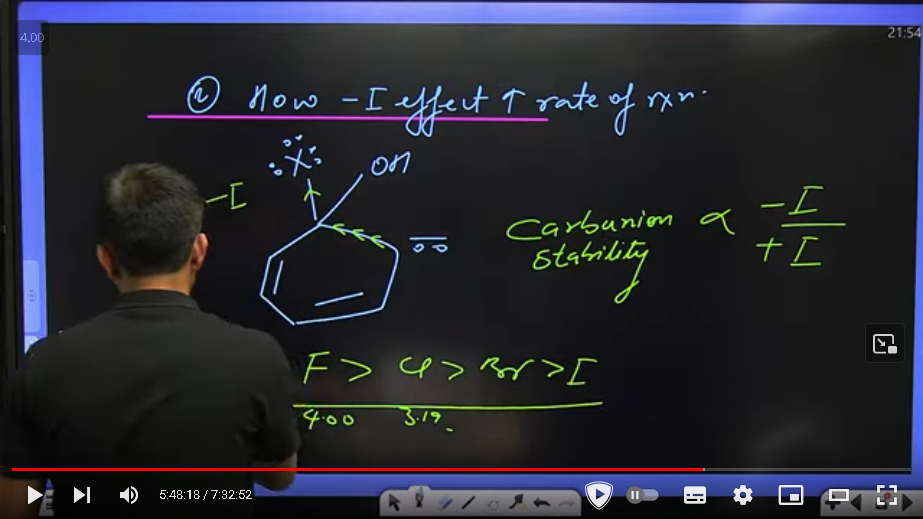 4.00
21:54
② How -I effect ↑ rate of rxn.
X
OH
-I
Carbanion stability ∝ -I / +I
F > Cl > Br > I
4.00 3.19
5:48:18 / 7:32:52